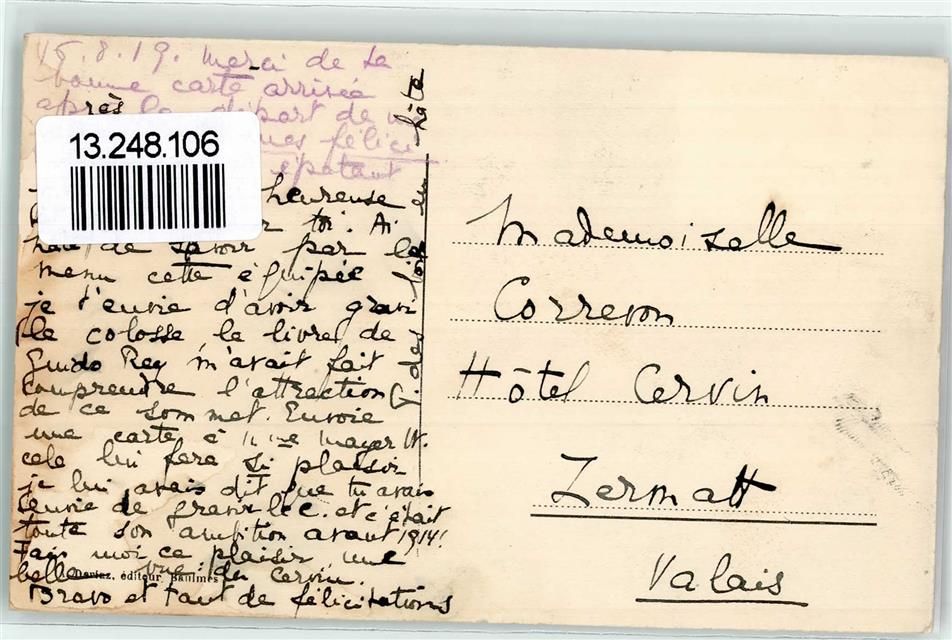 15.8.19. Merci de ta
bonne carte arrivée
après le départ de
félici
épatant
13.248.106
heureuse
toi. Ai
hâte de savoir par le
menu cette équipée
je t'envie d'avoir gravi
le colosse, le livre de
Guido Rey m'avait fait
comprendre l'attraction
de ce sommet. Envoie
une carte à Mme Mayer W.
cela lui fera si plaisir
je lui avais dit que tu avais
envie de gravir le C. et c'était
toute son ambition avant 1914!
Fais moi ce plaisir, une
belle vue du Cervin.
Dériaz, éditeur, Baulmes
Bravo et tant de félicitations
Mademoiselle
Correvon
Hôtel Cervin
Zermatt
Valais